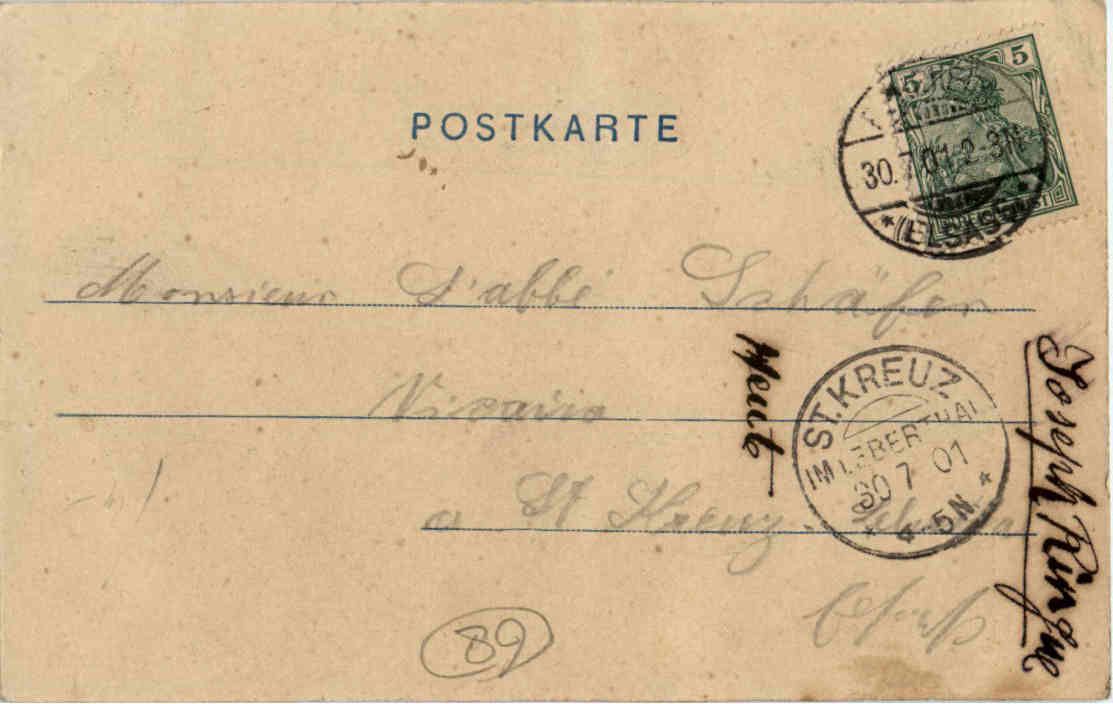 POSTKARTE
5 5
30.7.01.2-3N
* (ELSASS) *
Monsieur L'abbé Schäfer
Vicaire
a St Kreuz
ST. KREUZ
IM LEBERTHAL
30 7 01
* 4-5N. *
Joseph
89